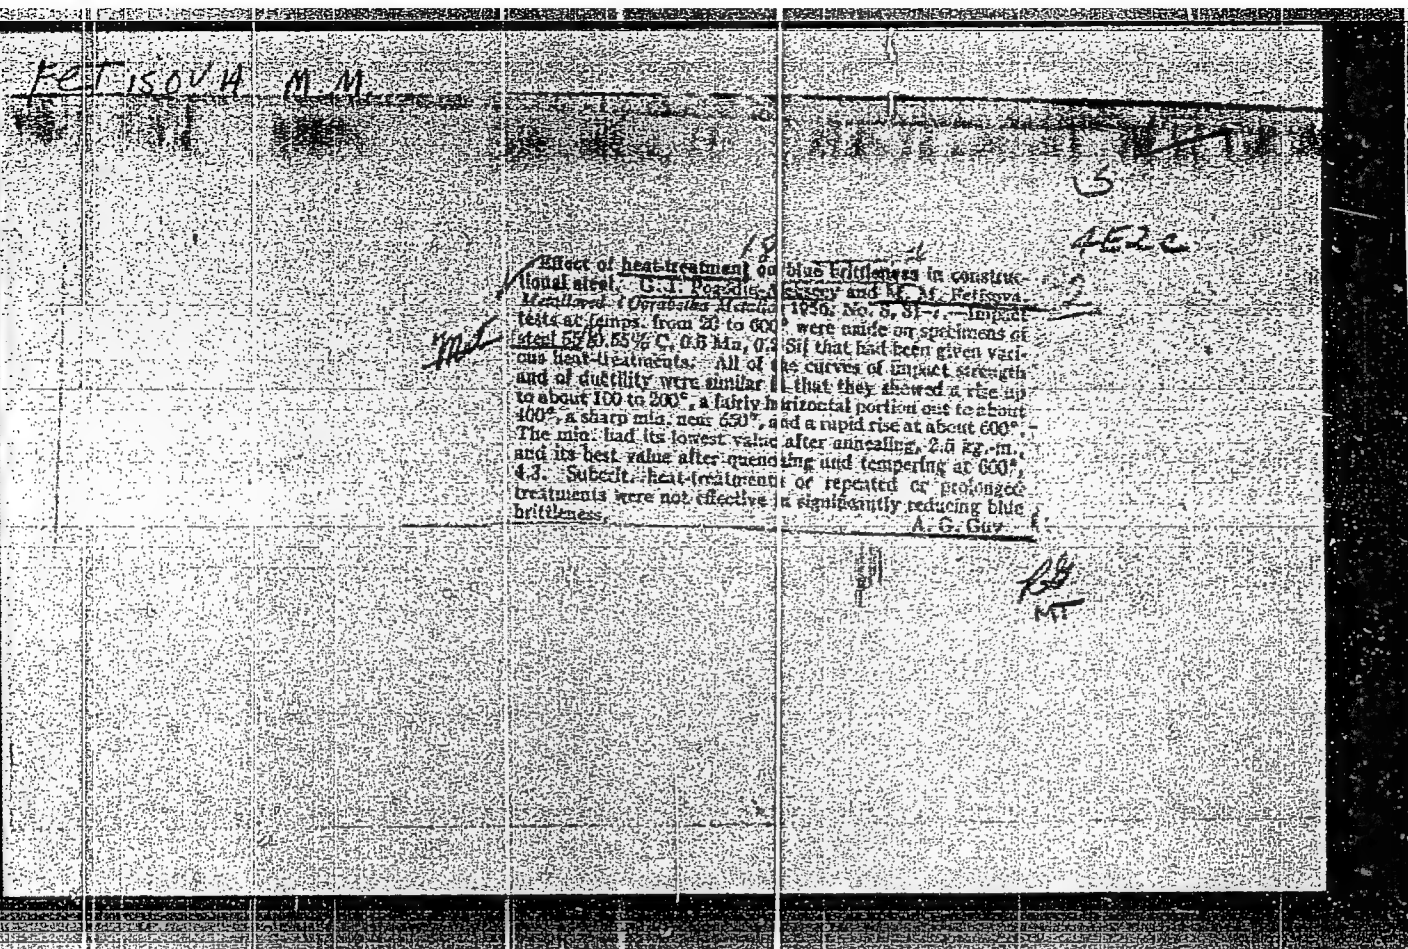 FETISOVA M.M.
5
18
4E2c
Effect of heat-treatment on blue brittleness in construc-
tional steel. G. I. and M. M. Fetisova.
Metalloved. i Obrabotka Metallov 1956, No. 8, Impact
2
tests at temps. from 20 to 600° were made on specimens of
Met
steel 55 (0.55% C, 0.6 Mn, 0.2 Si) that had been given vari-
ous heat-treatments. All of the curves of impact strength
and of ductility were similar in that they showed a rise up
to about 100 to 200°, a fairly horizontal portion out to about
400°, a sharp min. near 550°, and a rapid rise at about 600°.
The min. had its lowest value after annealing, 2.5 kg.-m.,
and its best value after quenching and tempering at 600°,
4.3. Subcrit. heat-treatments or repeated or prolonged
treatments were not effective in significantly reducing blue
brittleness. A. G. Guy
MT